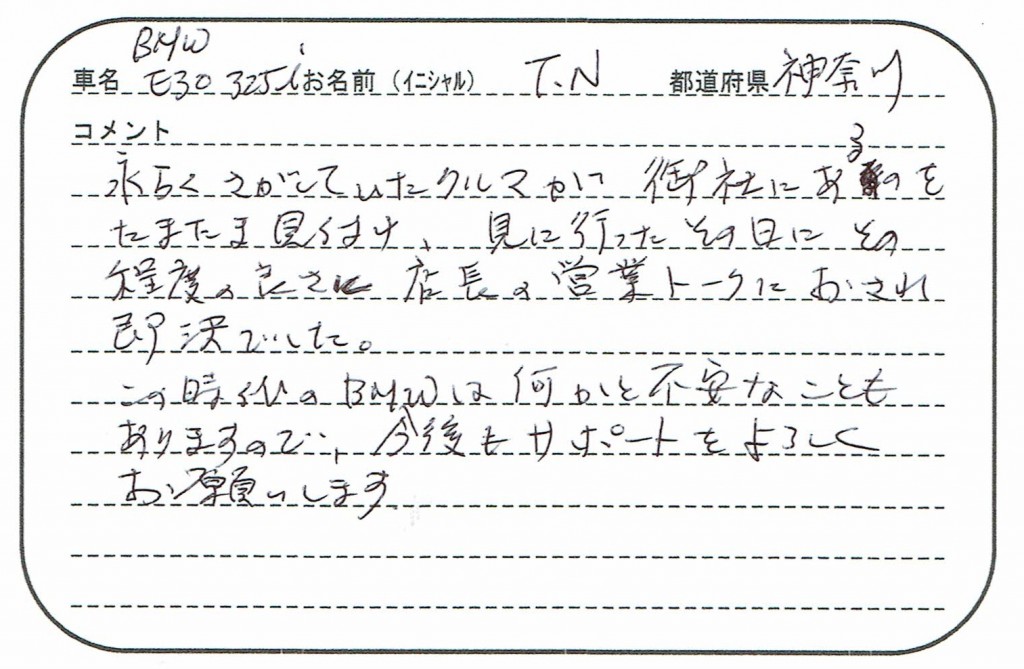 BMW
車名 E30 325i お名前 (イニシャル) T.N 都道府県 神奈川
コメント
永らくさがしていたクルマが 御社にあるのを
たまたま見付け、見に行ったその日にその
程度の良さに 店長の営業トークにおされ
即決でした。
この時代のBMWは何かと不安なことも
ありますので、今後もサポートをよろしく
お願いします